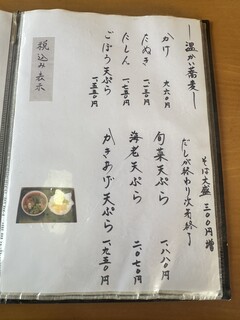 温かい蕎麦
そば大盛 三〇〇円増
だしが終わり次第終了
かけ 六六〇円
たぬき
にしん
ごぼう天ぷら 一、五五〇円
旬菜天ぷら 一、八八〇円
海老天ぷら 二、〇七〇円
かきあげ天ぷら 一、九五〇円
税込み表示